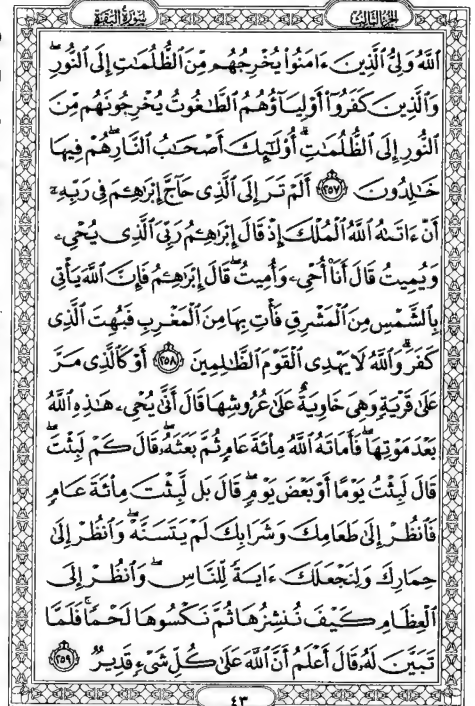 الجزء الثالث سورة البقرة
ٱللَّهُ وَلِيُّ ٱلَّذِينَ ءَامَنُوا۟ يُخْرِجُهُم مِّنَ ٱلظُّلُمَٰتِ إِلَى ٱلنُّورِۖ
وَٱلَّذِينَ كَفَرُوٓا۟ أَوْلِيَآؤُهُمُ ٱلطَّٰغُوتُ يُخْرِجُونَهُم مِّنَ
ٱلنُّورِ إِلَى ٱلظُّلُمَٰتِۗ أُو۟لَٰٓئِكَ أَصْحَٰبُ ٱلنَّارِۖ هُمْ فِيهَا
خَٰلِدُونَ ٢٥٧ أَلَمْ تَرَ إِلَى ٱلَّذِى حَآجَّ إِبْرَٰهِـۧمَ فِى رَبِّهِۦٓ
أَنْ ءَاتَىٰهُ ٱللَّهُ ٱلْمُلْكَ إِذْ قَالَ إِبْرَٰهِـۧمُ رَبِّىَ ٱلَّذِى يُحْىِۦ
وَيُمِيتُ قَالَ أَنَا۠ أُحْىِۦ وَأُمِيتُۖ قَالَ إِبْرَٰهِـۧمُ فَإِنَّ ٱللَّهَ يَأْتِى
بِٱلشَّمْسِ مِنَ ٱلْمَشْرِقِ فَأْتِ بِهَا مِنَ ٱلْمَغْرِبِ فَبُهِتَ ٱلَّذِى
كَفَرَۗ وَٱللَّهُ لَا يَهْدِى ٱلْقَوْمَ ٱلظَّٰلِمِينَ ٢٥٨ أَوْ كَٱلَّذِى مَرَّ
عَلَىٰ قَرْيَةٍ وَهِىَ خَاوِيَةٌ عَلَىٰ عُرُوشِهَا قَالَ أَنَّىٰ يُحْىِۦ هَٰذِهِ ٱللَّهُ
بَعْدَ مَوْتِهَاۖ فَأَمَاتَهُ ٱللَّهُ مِا۟ئَةَ عَامٍ ثُمَّ بَعَثَهُۥۖ قَالَ كَمْ لَبِثْتَۖ
قَالَ لَبِثْتُ يَوْمًا أَوْ بَعْضَ يَوْمٍۖ قَالَ بَل لَّبِثْتَ مِا۟ئَةَ عَامٍ
فَٱنظُرْ إِلَىٰ طَعَامِكَ وَشَرَابِكَ لَمْ يَتَسَنَّهْۖ وَٱنظُرْ إِلَىٰ
حِمَارِكَ وَلِنَجْعَلَكَ ءَايَةً لِّلنَّاسِۖ وَٱنظُرْ إِلَى
ٱلْعِظَامِ كَيْفَ نُنشِزُهَا ثُمَّ نَكْسُوهَا لَحْمًاۚ فَلَمَّا
تَبَيَّنَ لَهُۥ قَالَ أَعْلَمُ أَنَّ ٱللَّهَ عَلَىٰ كُلِّ شَىْءٍ قَدِيرٌ ٢٥٩
٤٣